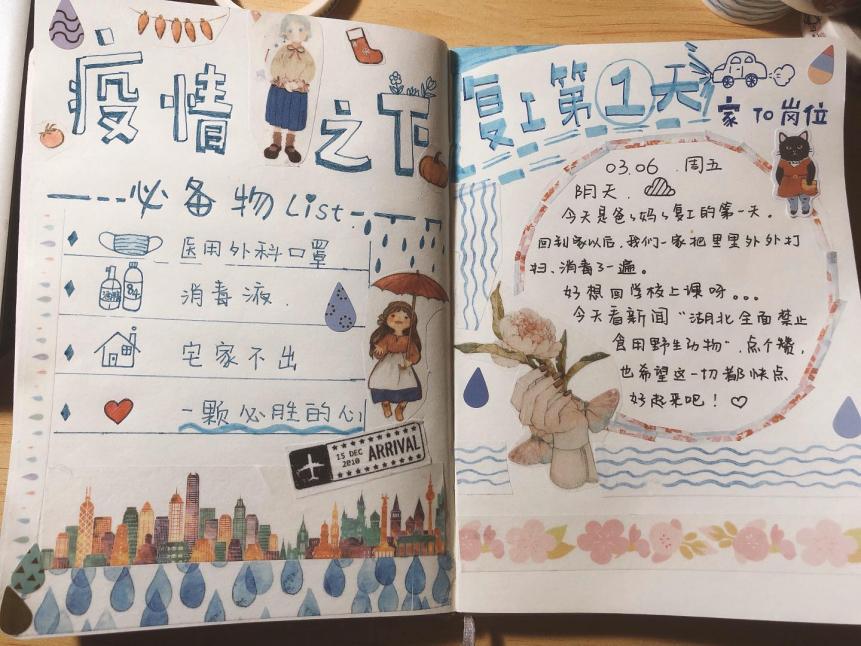 疫情之下
---必备物List---
医用外科口罩
84
消毒液.
宅家不出
一颗必胜的心
15 DEC 2010 ARRIVAL
复工第1天
家 TO 岗位
03.06 周五
阴天.
今天是爸爸妈妈复工的第一天。
回到家以后,我们一家把里里外外打
扫、消毒了一遍。
好想回学校上课呀。。。
今天看新闻“湖北全面禁止
食用野生动物”,点个赞,
也希望这一切都快点
好起来吧!♡